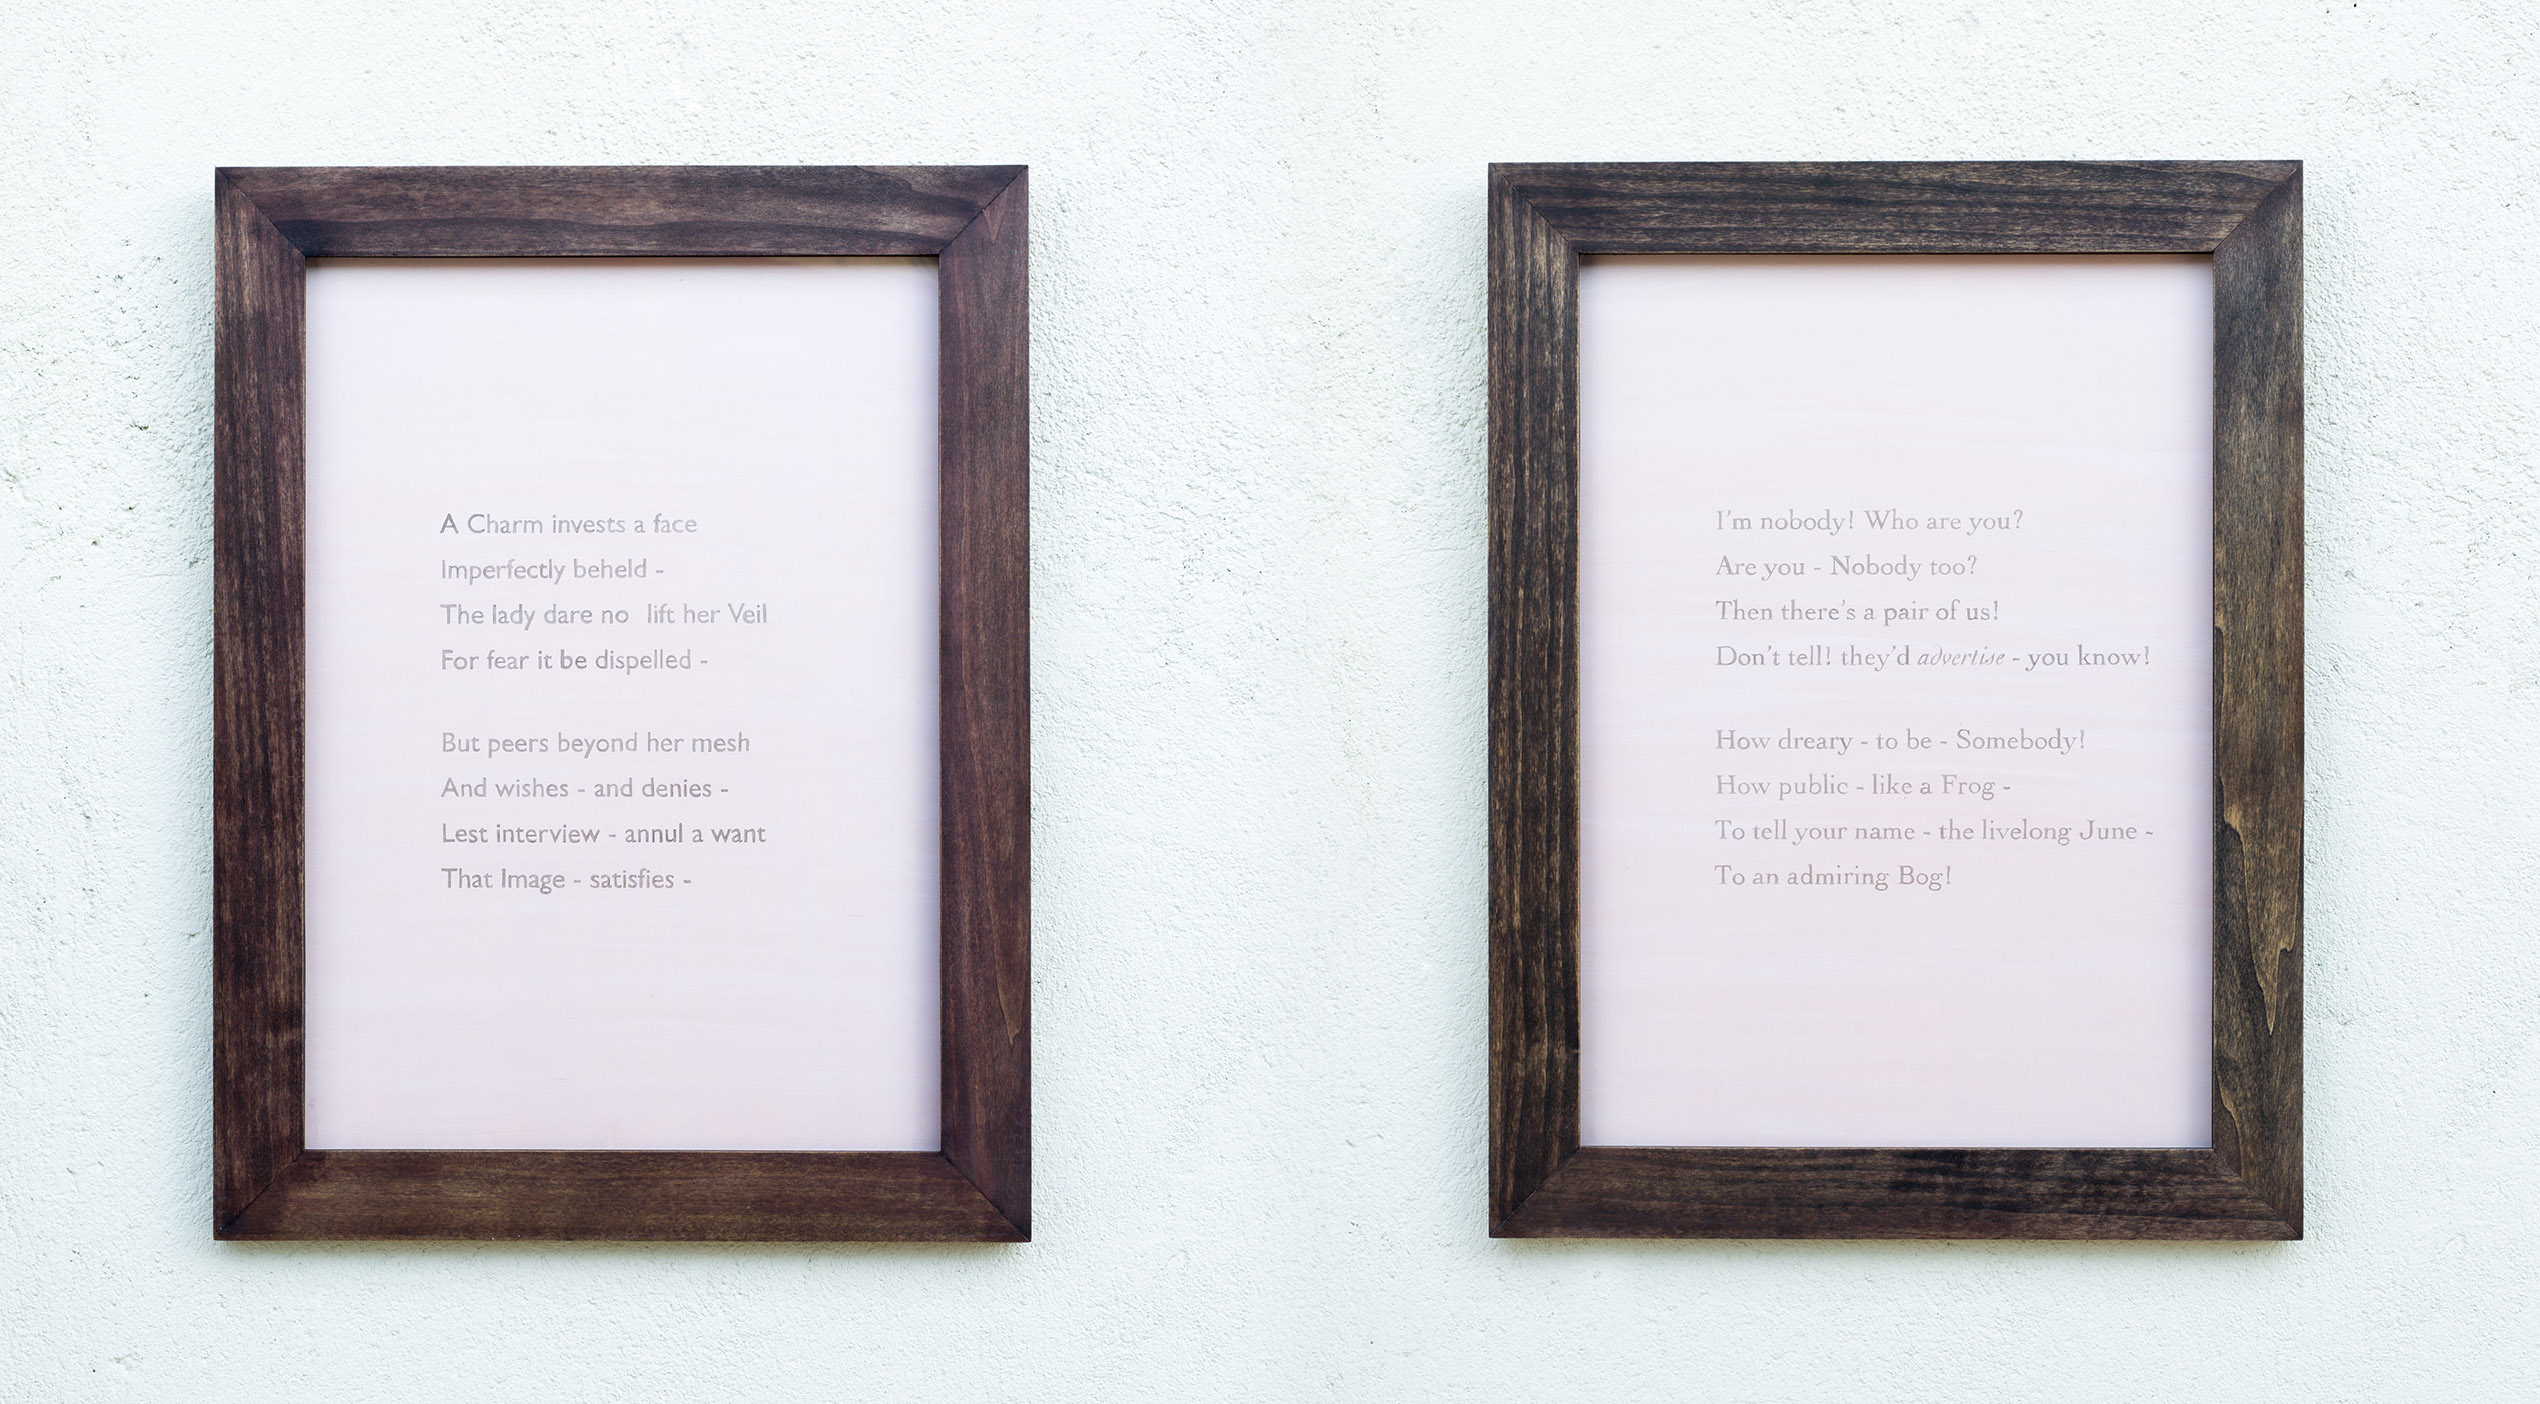 A Charm invests a face
Imperfectly beheld -
The lady dare no lift her Veil
For fear it be dispelled -
But peers beyond her mesh
And wishes - and denies -
Lest interview - annul a want
That Image - satisfies -
I'm nobody! Who are you?
Are you - Nobody too?
Then there's a pair of us!
Don't tell! they'd advertise - you know!
How dreary - to be - Somebody!
How public - like a Frog -
To tell your name - the livelong June -
To an admiring Bog!